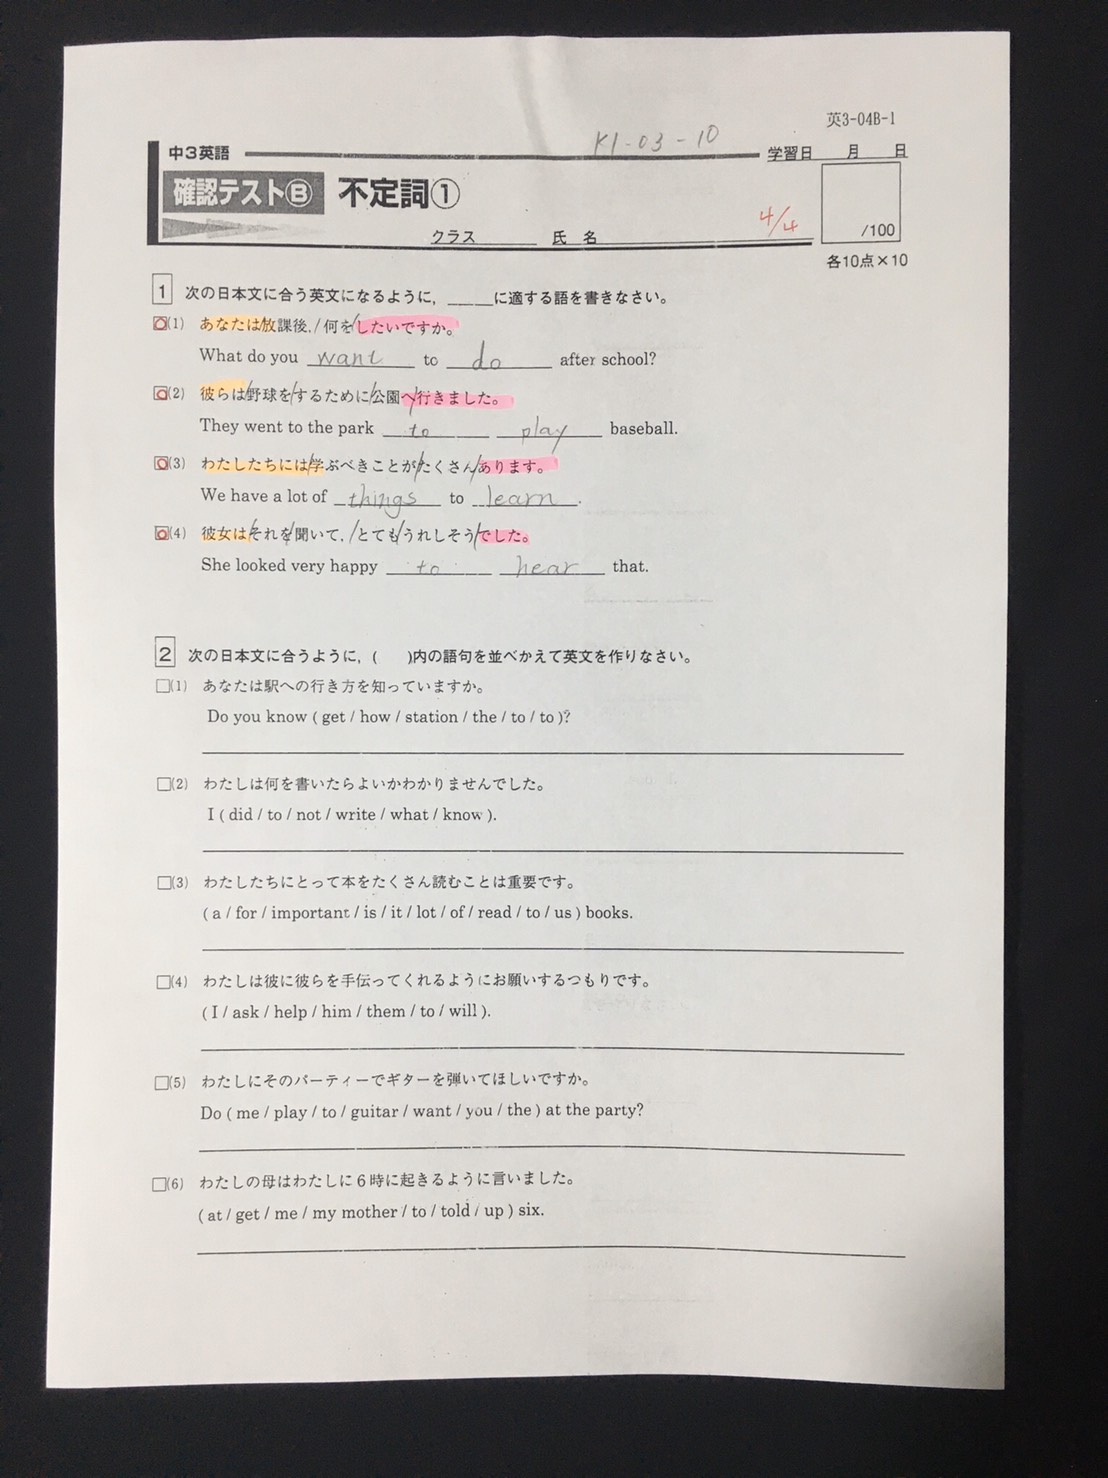 英3-04B-1
中3英語
K1-03-10
学習日 月 日
確認テストⒷ 不定詞①
4/4
/100
クラス 氏名
各10点×10
1 次の日本文に合う英文になるように, ____に適する語を書きなさい。
□(1) あなたは/放課後,/何を/したいですか。
What do you want to do after school?
□(2) 彼らは/野球を/するために/公園へ/行きました。
They went to the park to play baseball.
□(3) わたしたちには/学ぶべきことが/たくさん/あります。
We have a lot of things to learn.
□(4) 彼女は/それを/聞いて,/とても/うれしそう/でした。
She looked very happy to hear that.
2 次の日本文に合うように, ( )内の語句を並べかえて英文を作りなさい。
□(1) あなたは駅への行き方を知っていますか。
Do you know ( get / how / station / the / to / to )?
□(2) わたしは何を書いたらよいかわかりませんでした。
I ( did / to / not / write / what / know ).
□(3) わたしたちにとって本をたくさん読むことは重要です。
( a / for / important / is / it / lot / of / read / to / us ) books.
□(4) わたしは彼に彼らを手伝ってくれるようにお願いするつもりです。
( I / ask / help / him / them / to / will ).
□(5) わたしにそのパーティーでギターを弾いてほしいですか。
Do ( me / play / to / guitar / want / you / the ) at the party?
□(6) わたしの母はわたしに6時に起きるように言いました。
( at / get / me / my mother / to / told / up ) six.